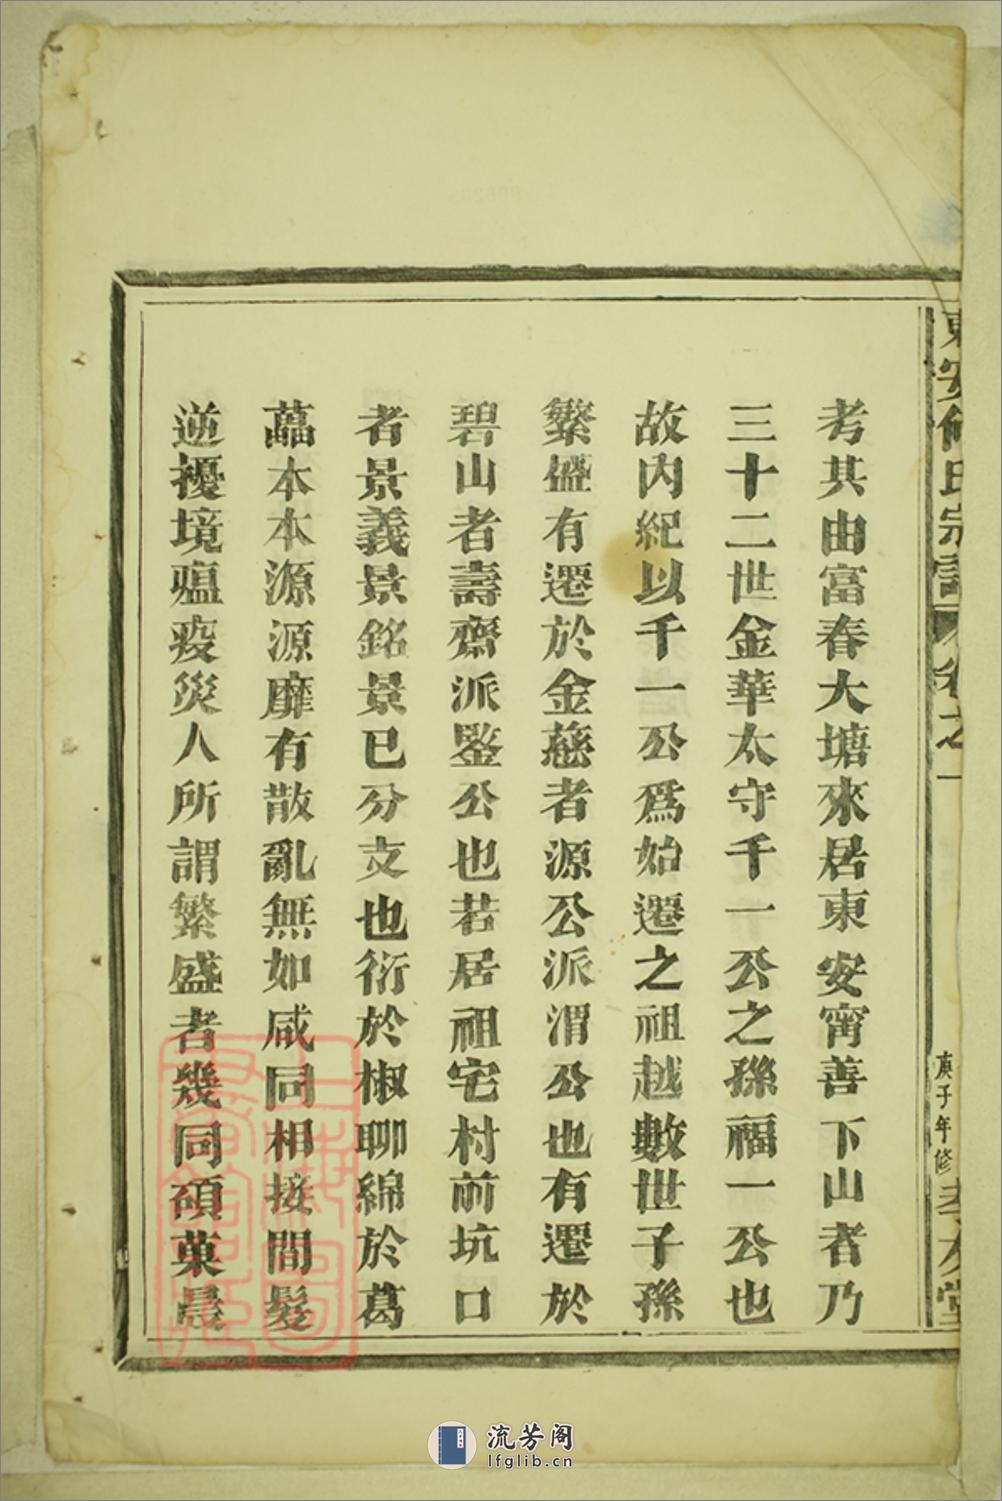 東安何氏宗譜 卷之一
庚子年修
考其由富春大塘來居東安甯善下山者乃
三十二世金華太守千一公之孫福一公也
故內紀以千一公爲始遷之祖越數世子孫
繁盛有遷於金慈者源公派渭公也有遷於
碧山者壽齋派鑒公也若居祖宅村前坑口
者景義景銘景已分支也衍於椒聊綿於葛
藟本本源源靡有散亂無如咸同相接間髮
逆擾境瘟疫災人所謂繁盛者幾同碩菓晨
上海圖書館藏
流芳阁
lfglib.cn